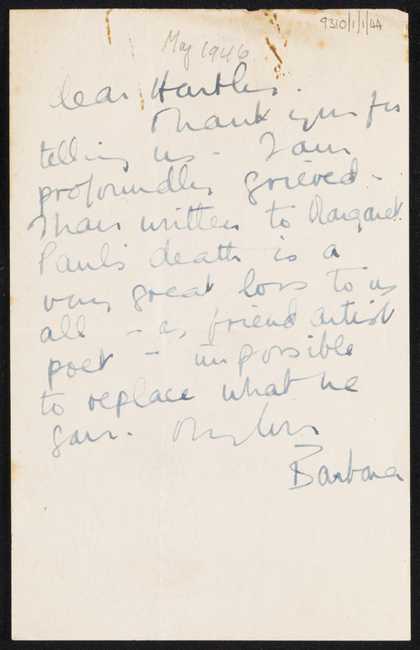 9310/1/1/44
May 1946
Dear Hartley.
Thank you for
telling us – I am
profoundly grieved –
I have written to Margaret.
Paul's death is a
very great loss to us
all – as friend artist
poet – impossible
to replace what he
gave. My love
Barbara